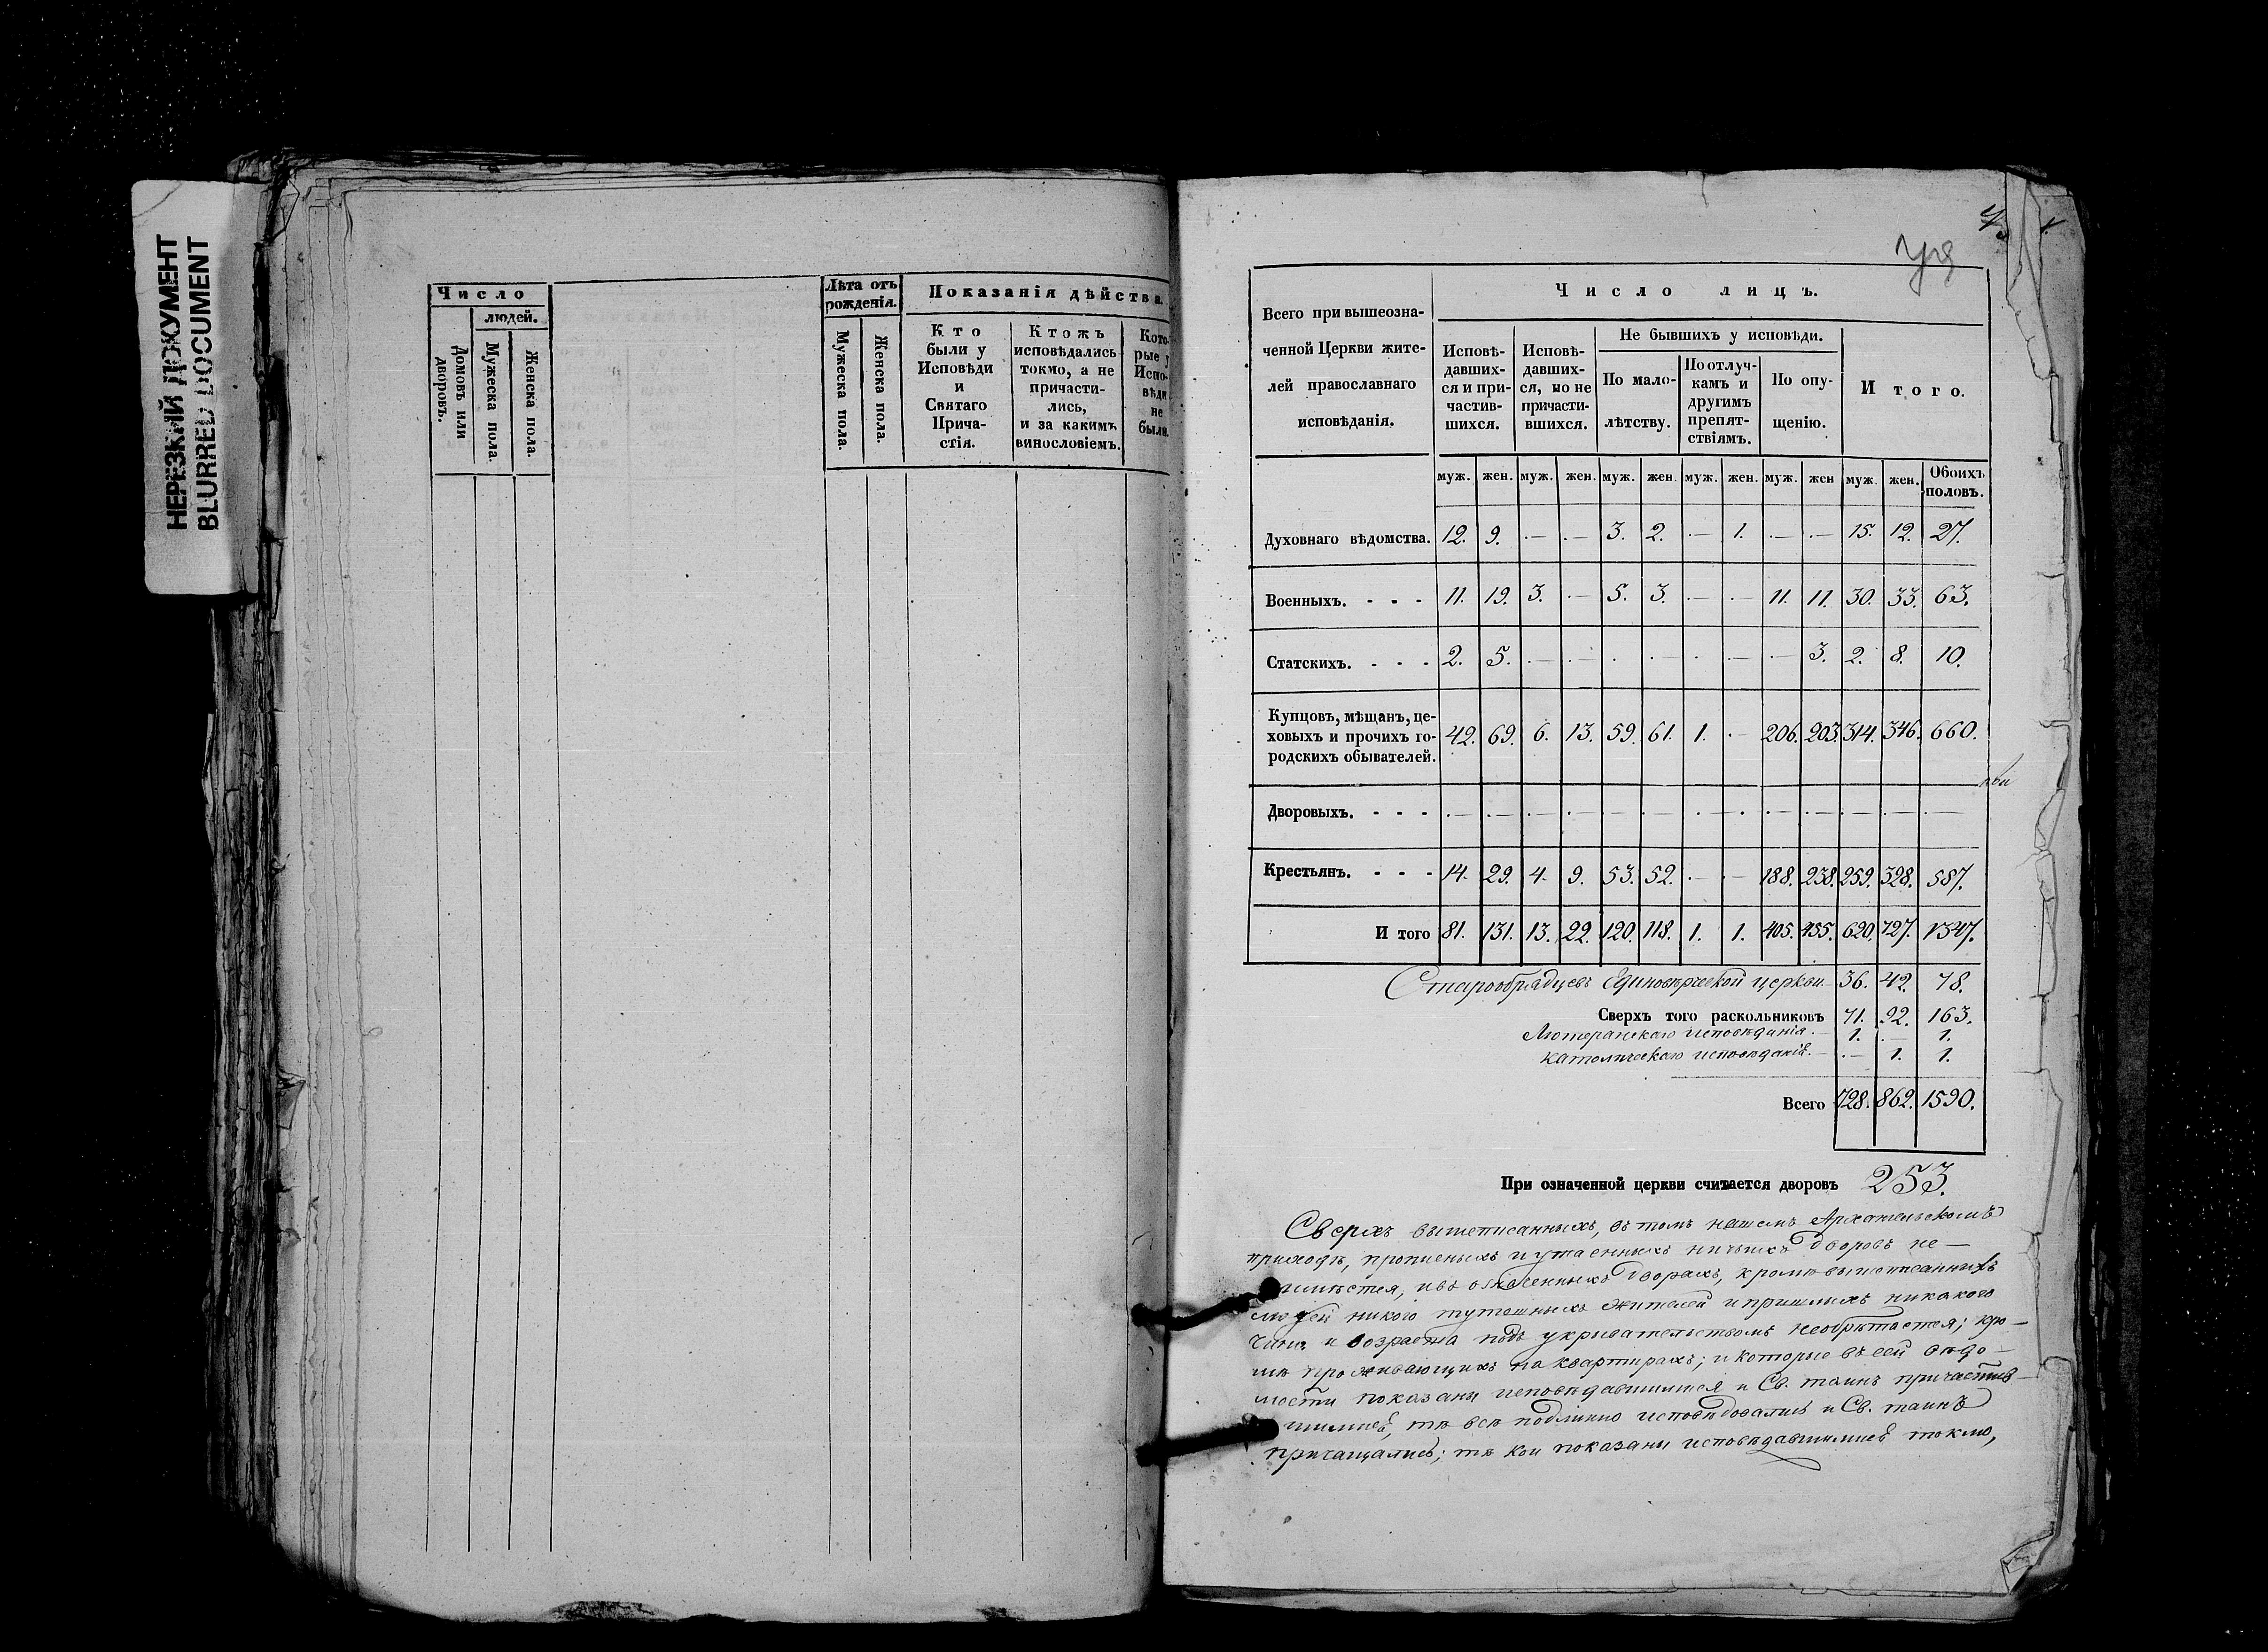 НЕРЕЗКИЙ ДОКУМЕНТ
BLURRED DOCUMENT
Число
людей.
Домовъ или дворовъ.
Мужеска пола.
Женска пола.
Лѣта отъ рожденія.
Мужеска пола.
Женска пола.
Показанія дѣйства.
Кто были у Исповѣди и Святаго Причастія.
Ктожъ исповѣдались токмо, а не причастились, и за какимъ винословіемъ.
Которые у Исповѣди не были.
Всего при вышеозначенной Церкви жителей православнаго исповѣданія.
Число лицъ.
Исповѣдавшихся и причастившихся.
Исповѣдавшихся, но не причастившихся.
Не бывшихъ у исповѣди.
По малолѣтству.
По отлучкамъ и другимъ препятствіямъ.
По опущенію.
И того.
муж. жен. муж. жен. муж. жен. муж. жен. муж. жен муж. жен. Обоихъ половъ.
Духовнаго вѣдомства. 12. 9. .— .— 3. 2. .— 1. .— .— 15. 12. 27.
Военныхъ. - - - 11. 19. 3. .— 5. 3. .— .— 11. 11. 30. 33. 63.
Статскихъ. - - - 2. 5. .— .— . .— . .— .— 3. 2. 8. 10.
Купцовъ, мѣщанъ, цеховыхъ и прочихъ городскихъ обывателей. 42. 69. 6. 13. 59. 61. 1. .— 206. 203. 314. 346. 660.
Дворовыхъ. - - - .— .— .— .— .— .— .— . .— .— .— .— .—
Крестьянъ. - - - 14. 29. 4. 9. 53. 52. .— .— 188. 238. 259. 328. 587.
И того 81. 131. 13. 22. 120. 118. 1. 1. 405. 455. 620. 727. 1347.
Старообрядцевъ Единовѣрческой церкви 36. 42. 78.
Сверхъ того раскольниковъ 71. 92. 163.
Лютеранскаго исповѣданія.— 1. .— 1.
Католическаго исповѣданія.— .— 1. 1.
Всего 728. 862. 1590.
При означенной церкви считается дворовъ 253.
Сверхъ вышеписанныхъ, въ томъ нашемъ Архангельскомъ
приходѣ, прописныхъ и утаенныхъ ничьихъ дворовъ не—
имѣется, и въ означенныхъ дворахъ, кромѣ вышеписанныхъ
людей никого тутошныхъ жителей и пришлыхъ никакого
чина и возраста подъ укрывательствомъ необрѣтается; кро—
мѣ проживающихъ на квартирахъ; и которые въ сей вѣдо—
мости показаны исповѣдавшимися и Св. таинъ причастив—
шимися, тѣ всѣ подлинно исповѣдовались и Св. таинъ
причащались; тѣ кои показаны исповѣдавшимися токмо,